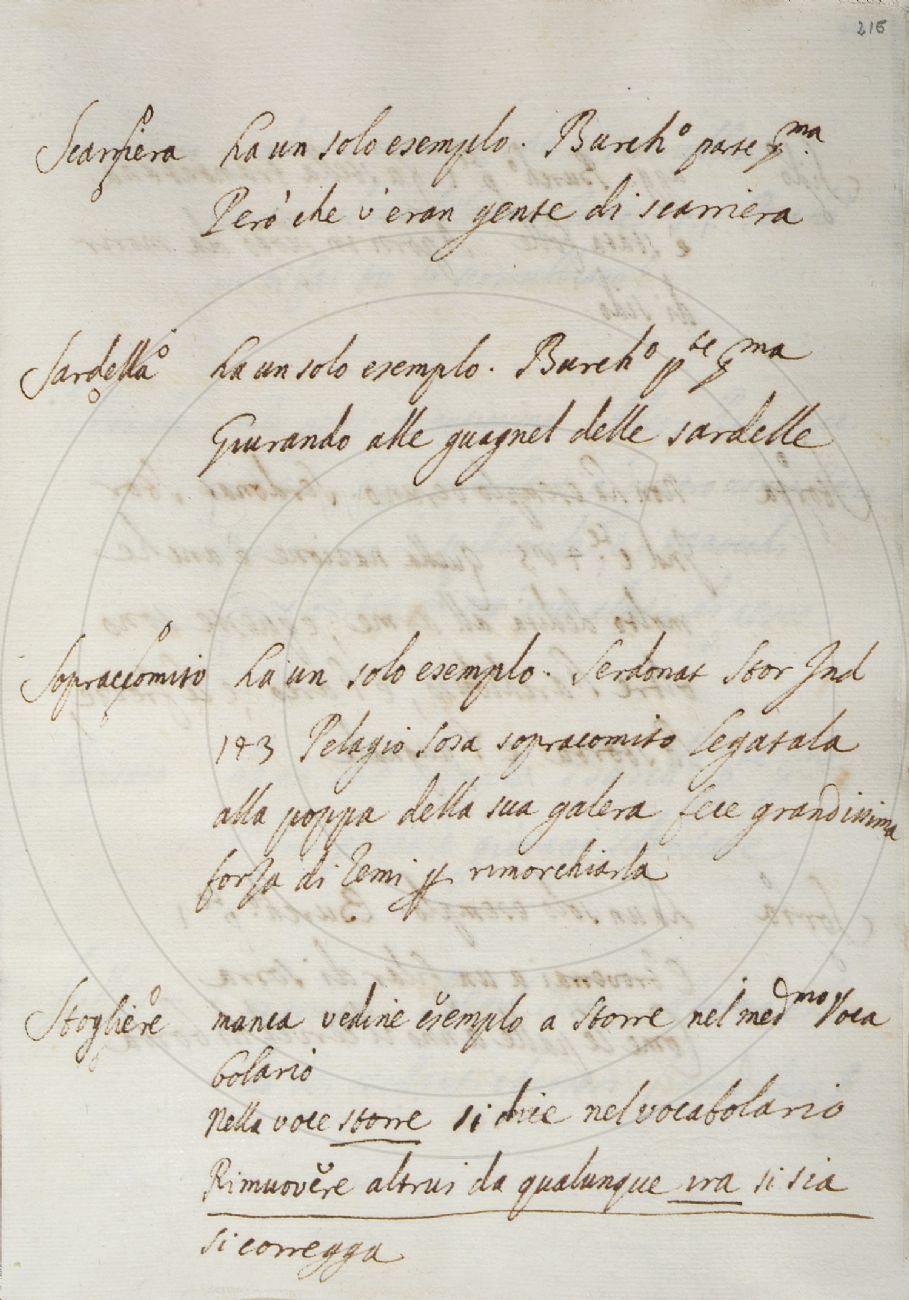 216
Scarriera ha un solo esempio. Burch° parte pma
Però che v'eran gente di scarriera
Sardella ha un solo esempio. Burch° pte pma
Giurando alle guagnel delle sardelle
Sopraccomito ha un solo esempio. Serdonat Stor Ind
183 Pelagio Sosa sopracomito legatala
alla poppa della sua galera fece grandissima
forza di remi p rimorchiarla
Stogliere manca vedine esemplo a Storre nel medmo Voca
bolario
Nella voce storre si dice nel vocabolario
Rimuovere altrui da qualunque ira si sia
si corregga